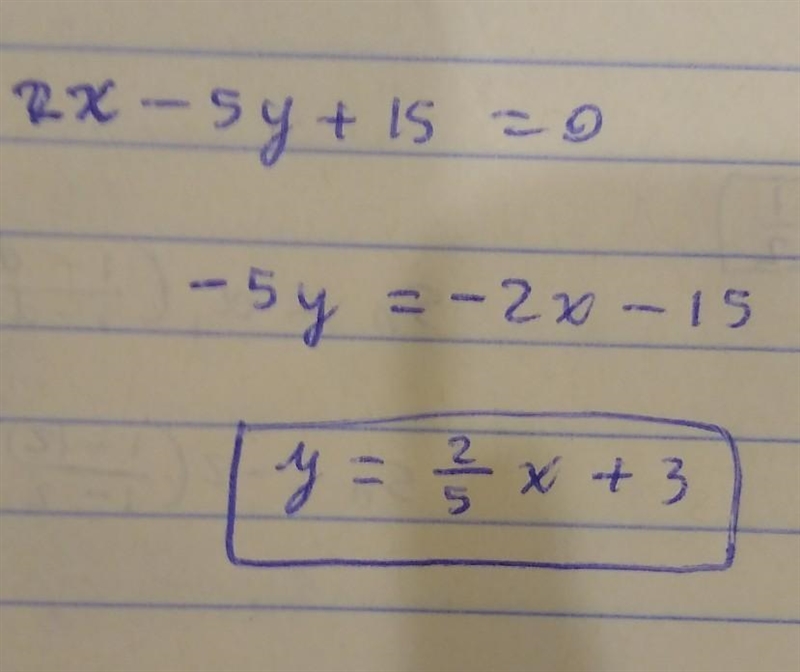 2x - 5y + 15 = 0
-5y = -2x - 15
y = 2/5 x + 3